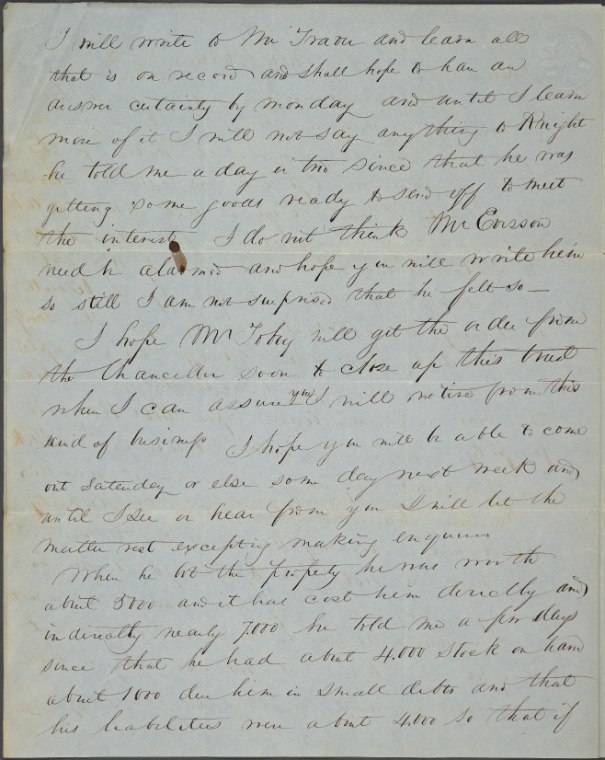 I will write to Mr Traver and learn all
that is on record and shall hope to have an
answer certainty by monday and until I learn
more of it I will not say anything to Knight
he told me a day or two since that he was
getting some goods ready to send off to meet
the interest I do not think Mr Evisson
need be alarmed and hope you will write him
so still I am not surprised that he felt so —
I hope Mr Tobey will get the order from
the Chancellor soon to close up this trust
when I can assure you I will retire from this
kind of business I hope you will be able to come
out Saturday or else some day next week and
until I see or hear from you I will let the
matter rest excepting making enquiries
When he bot the property he was worth
about 5000 and it has cost him directly and
indirectly nearly 7.000 he told me a few days
since that he had about 4.000 Stock on hand
about 1000 due him in small debts and that
his liabilities were about 4.000 so that if